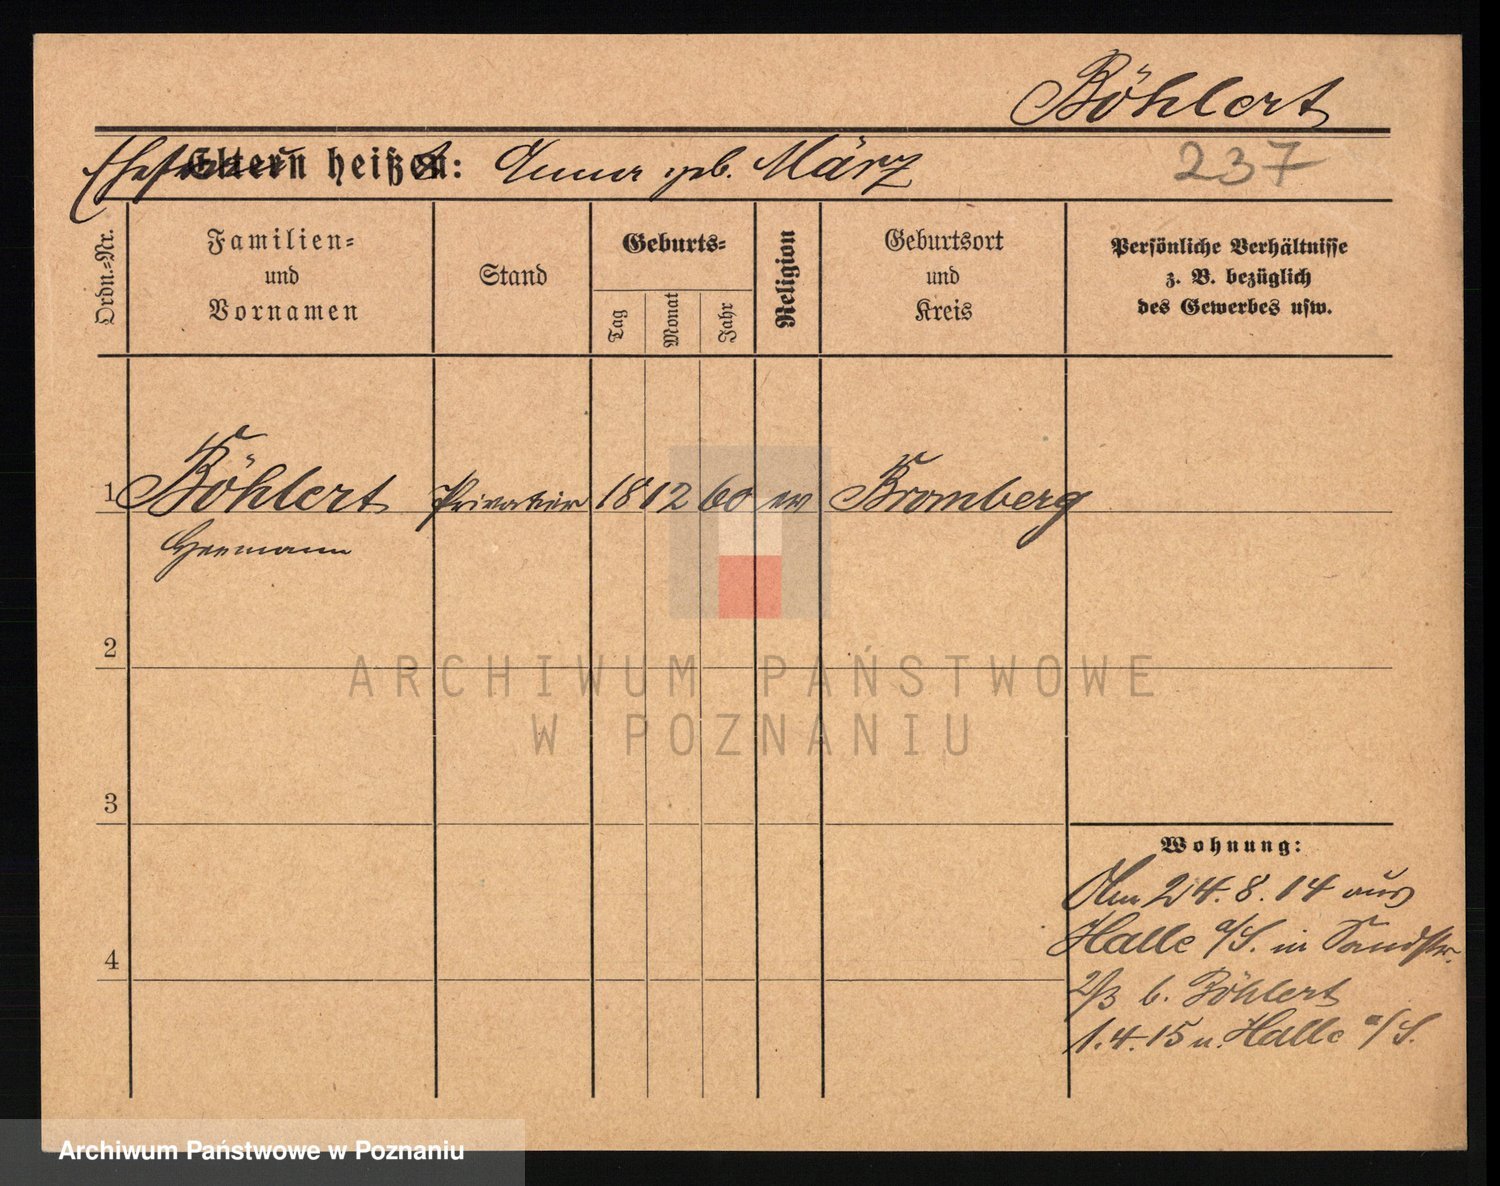 Böhlert
Ehefrau Eltern heißen: Anna geb. März
237
Ordn.-Nr.
Familien-
und
Vornamen
Stand
Geburts-
Tag
Monat
Jahr
Religion
Geburtsort
und
Kreis
Persönliche Verhältnisse
z. B. bezüglich
des Gewerbes usw.
1 Böhlert Privatier 18 12 60 ev Bromberg
Hermann
2
ARCHIWUM PAŃSTWOWE
W POZNANIU
3
Wohnung:
Am 24.8.14 aus
Halle a/S. in Sandstr.
4
2/3 b. Böhlert
1.4.15 n. Halle a/S.
Archiwum Państwowe w Poznaniu